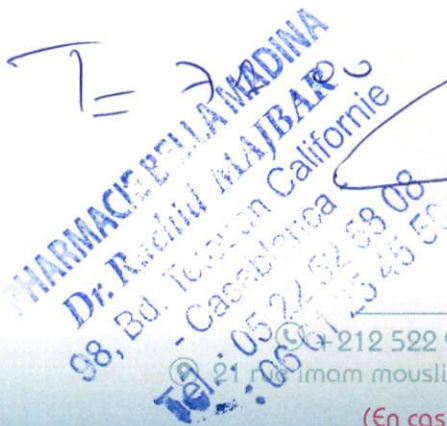 T=
PHARMACIE BELLA MADINA
Dr. Rachid MAJBAR
98, Bd. Californie
- Casablanca
Tél.: 05 22 52 58 08
+212 522
21 rue imam mousli
(En cas